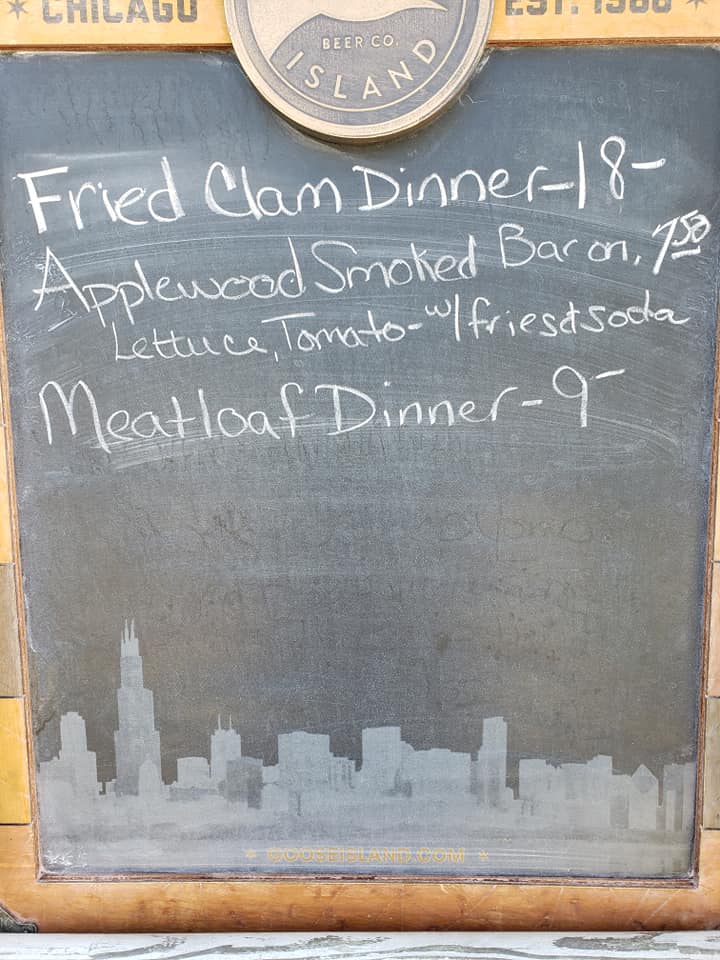 CHICAGO
EST. 1988
BEER CO.
ISLAND
Fried Clam Dinner-18-
Applewood Smoked Bacon, 7.50
Lettuce, Tomato- w/fries&soda
Meatloaf Dinner-9-
GOOSEISLAND.COM